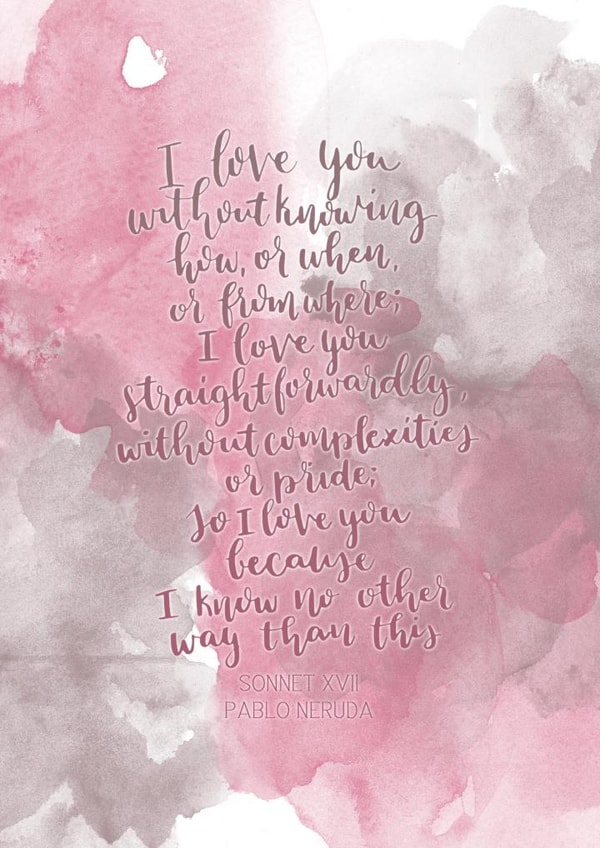 I love you
without knowing
how, or when,
or from where;
I love you
straightforwardly,
without complexities
or pride;
so I love you
because
I know no other
way than this
SONNET XVII
PABLO NERUDA